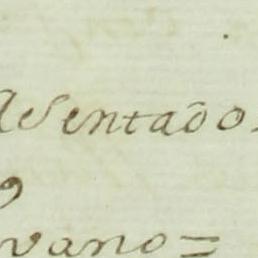 asentado
vano=